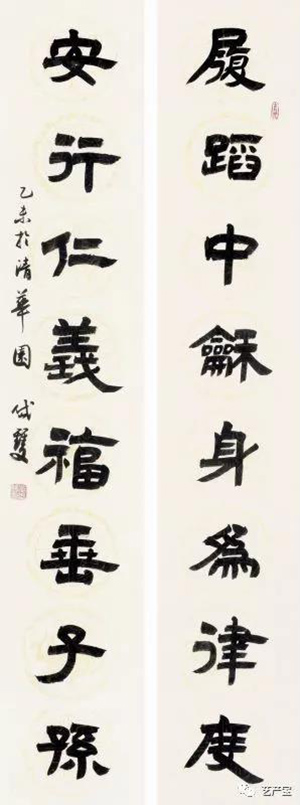 履蹈中龢身爲律度
安行仁義福垂子孫
乙未於清華園
艺产宝